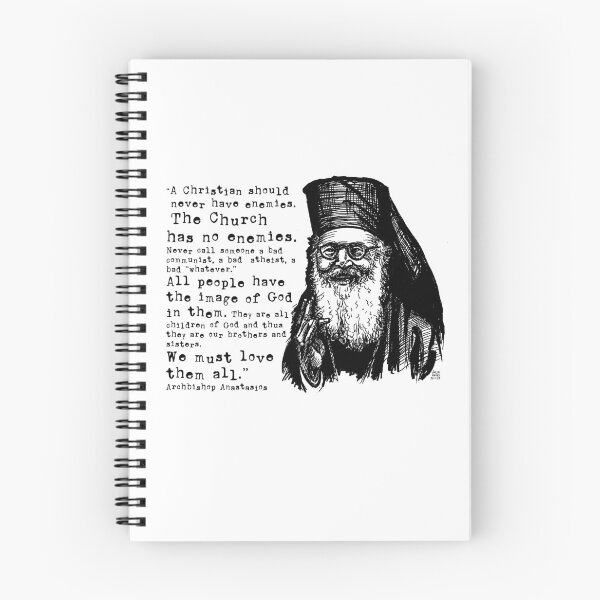 "A Christian should
never have enemies.
The Church
has no enemies.
Never call someone a bad
communist, a bad atheist, a
bad "whatever."
All people have
the image of God
in them. They are all
children of God and thus
they are our brothers and
sisters.
We must love
them all."
Archbishop Anastasios